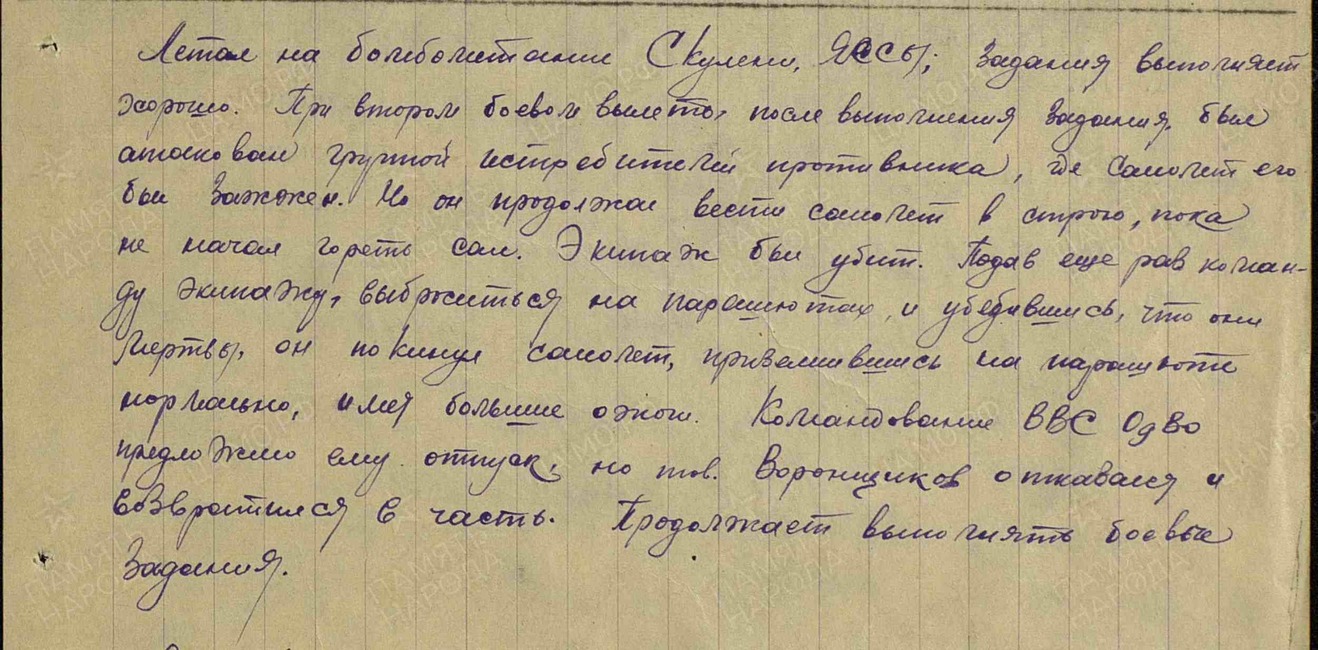 Летал на бомбометание Скулени, Яссы; Задания выполняет
хорошо. При втором боевом вылете, после выполнения задания, был
атакован группой истребителей противника, где самолет его
был зажжен. Но он продолжал вести самолет в строю, пока
не начал гореть сам. Экипаж был убит. Подав еще раз коман-
ду экипажу, выброситься на парашютах, и убедившись, что они
мертвы, он покинул самолет, приземлившись на парашюте
нормально, имея большие ожоги. Командование ВВС ОдВо
предложило ему отпуск, но тов. Воронщиков отказался и
возвратился в часть. Продолжает выполнять боевые
Задания.
ПАМЯТЬ НАРОДА
ЦА МО РФ